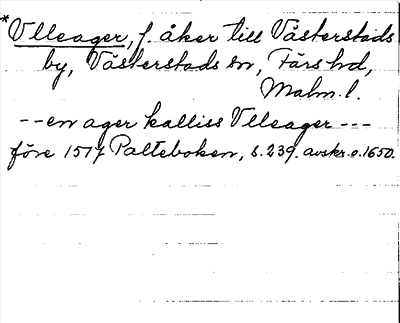 *Vlleager, f. åker till Västerstads
by, Västerstads sn, Färs hd,
Malm. l.
-- en ager kalliss Vlleager ---
före 1517 Palteboken, s. 239. avskr. o. 1650.